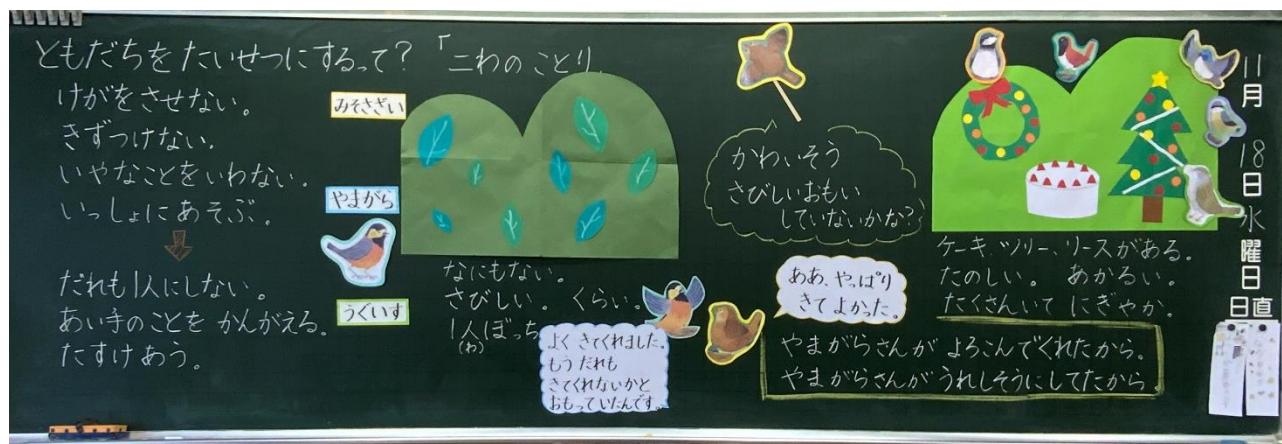 ともだちをたいせつにするって?
けがをさせない。
きずつけない。
いやなことをいわない。
いっしょにあそぶ。
だれも1人にしない。
あい手のことをかんがえる。
たすけあう。
みそさざい
やまがら
うぐいす
「二わのことり」
なにもない。
さびしい。くらい。
1人ぼっち
(わ)
よくきてくれました。
もうだれも
きてくれないかと
おもっていたんです。
かわいそう
さびしいおもい
していないかな?
ああ、やっぱり
きてよかった。
ケーキ、ツリー、リースがある。
たのしい。あかるい。
たくさんいてにぎやか。
やまがらさんがよろこんでくれたから。
やまがらさんがうれしそうにしてたから。
11月18日水曜日
日直